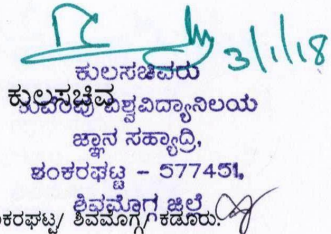 3/1/18
ಕುಲಸಚಿವರು
ಕುಲಸಚಿವ
ಕುವೆಂಪು ವಿಶ್ವವಿದ್ಯಾನಿಲಯ
ಜ್ಞಾನ ಸಹ್ಯಾದ್ರಿ,
ಶಂಕರಘಟ್ಟ - 577451,
ಶಿವಮೊಗ್ಗ ಜಿಲ್ಲೆ
ಕರಘಟ್ಟ/ ಶಿವಮೊಗ್ಗ/ ಕಡೂರು.